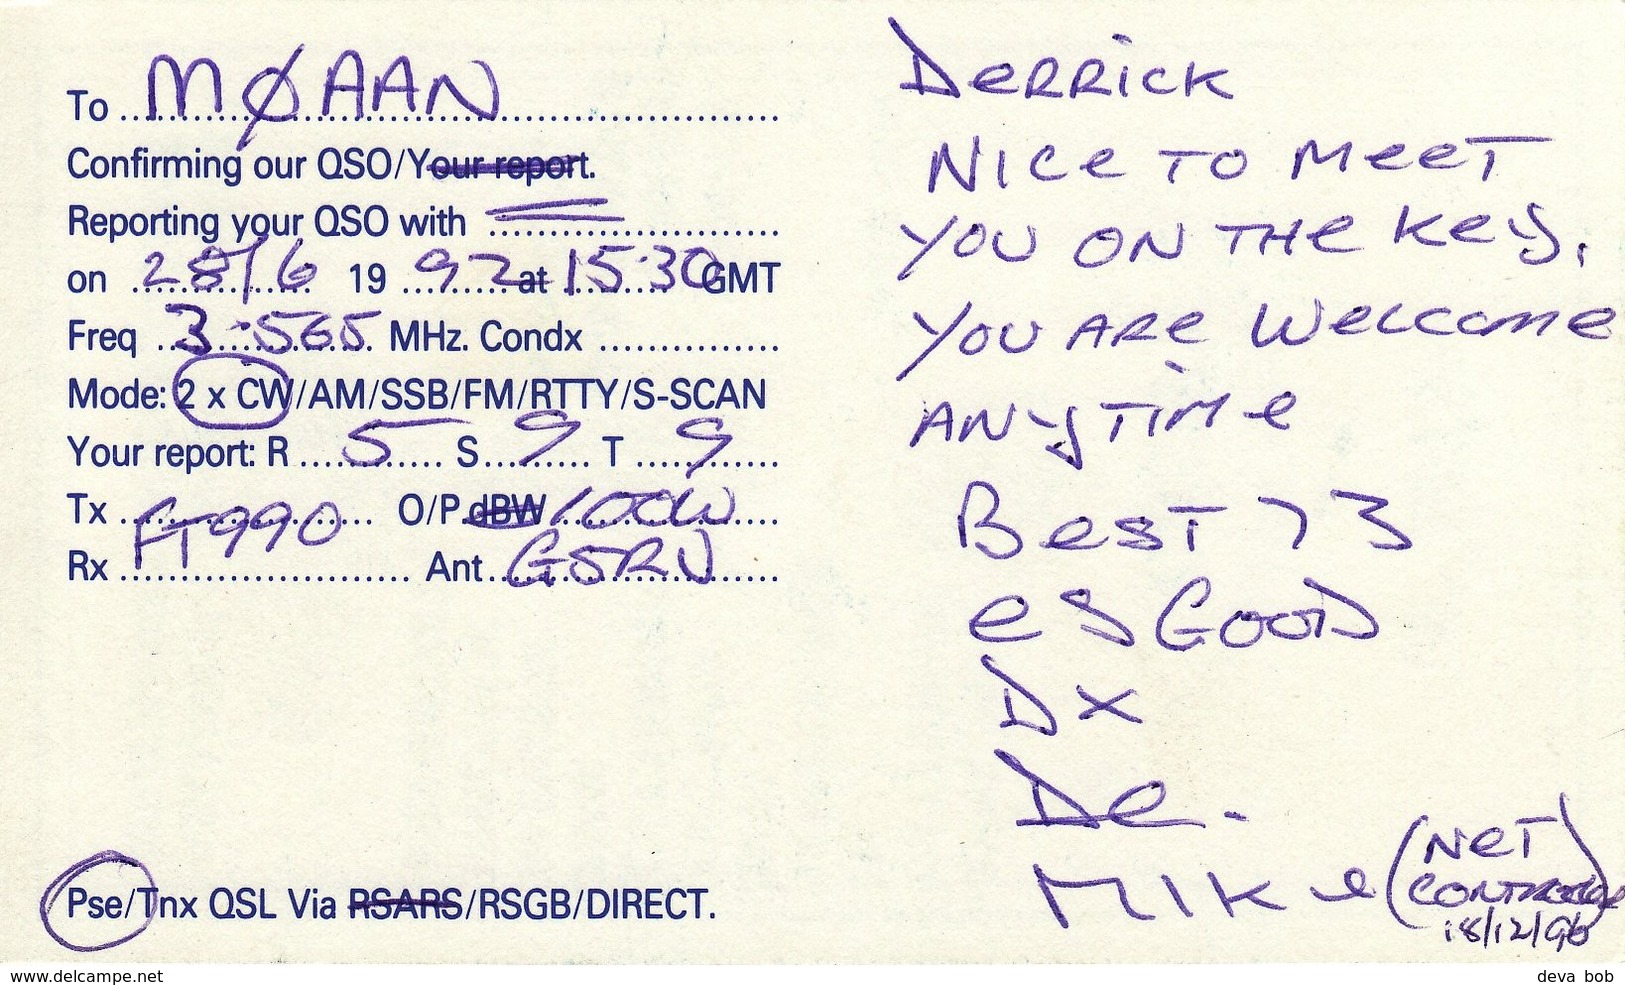 To MØAAN
Confirming our QSO/Your report.
Reporting your QSO with
on 28/6 1992 at 15·30 GMT
Freq 3·565 MHz. Condx
Mode: 2 x CW/AM/SSB/FM/RTTY/S-SCAN
Your report: R 5 S 9 T 9
Tx FT990 O/P dBW 100W
Rx Ant G5RV
Pse/Tnx QSL Via RSARS/RSGB/DIRECT.
Derrick
Nice to meet
you on the key.
You are welcome
anytime
Best 73
es Good
DX
De.
Mike (Net
Controller)
18/12/96
www.delcampe.net
deva bob